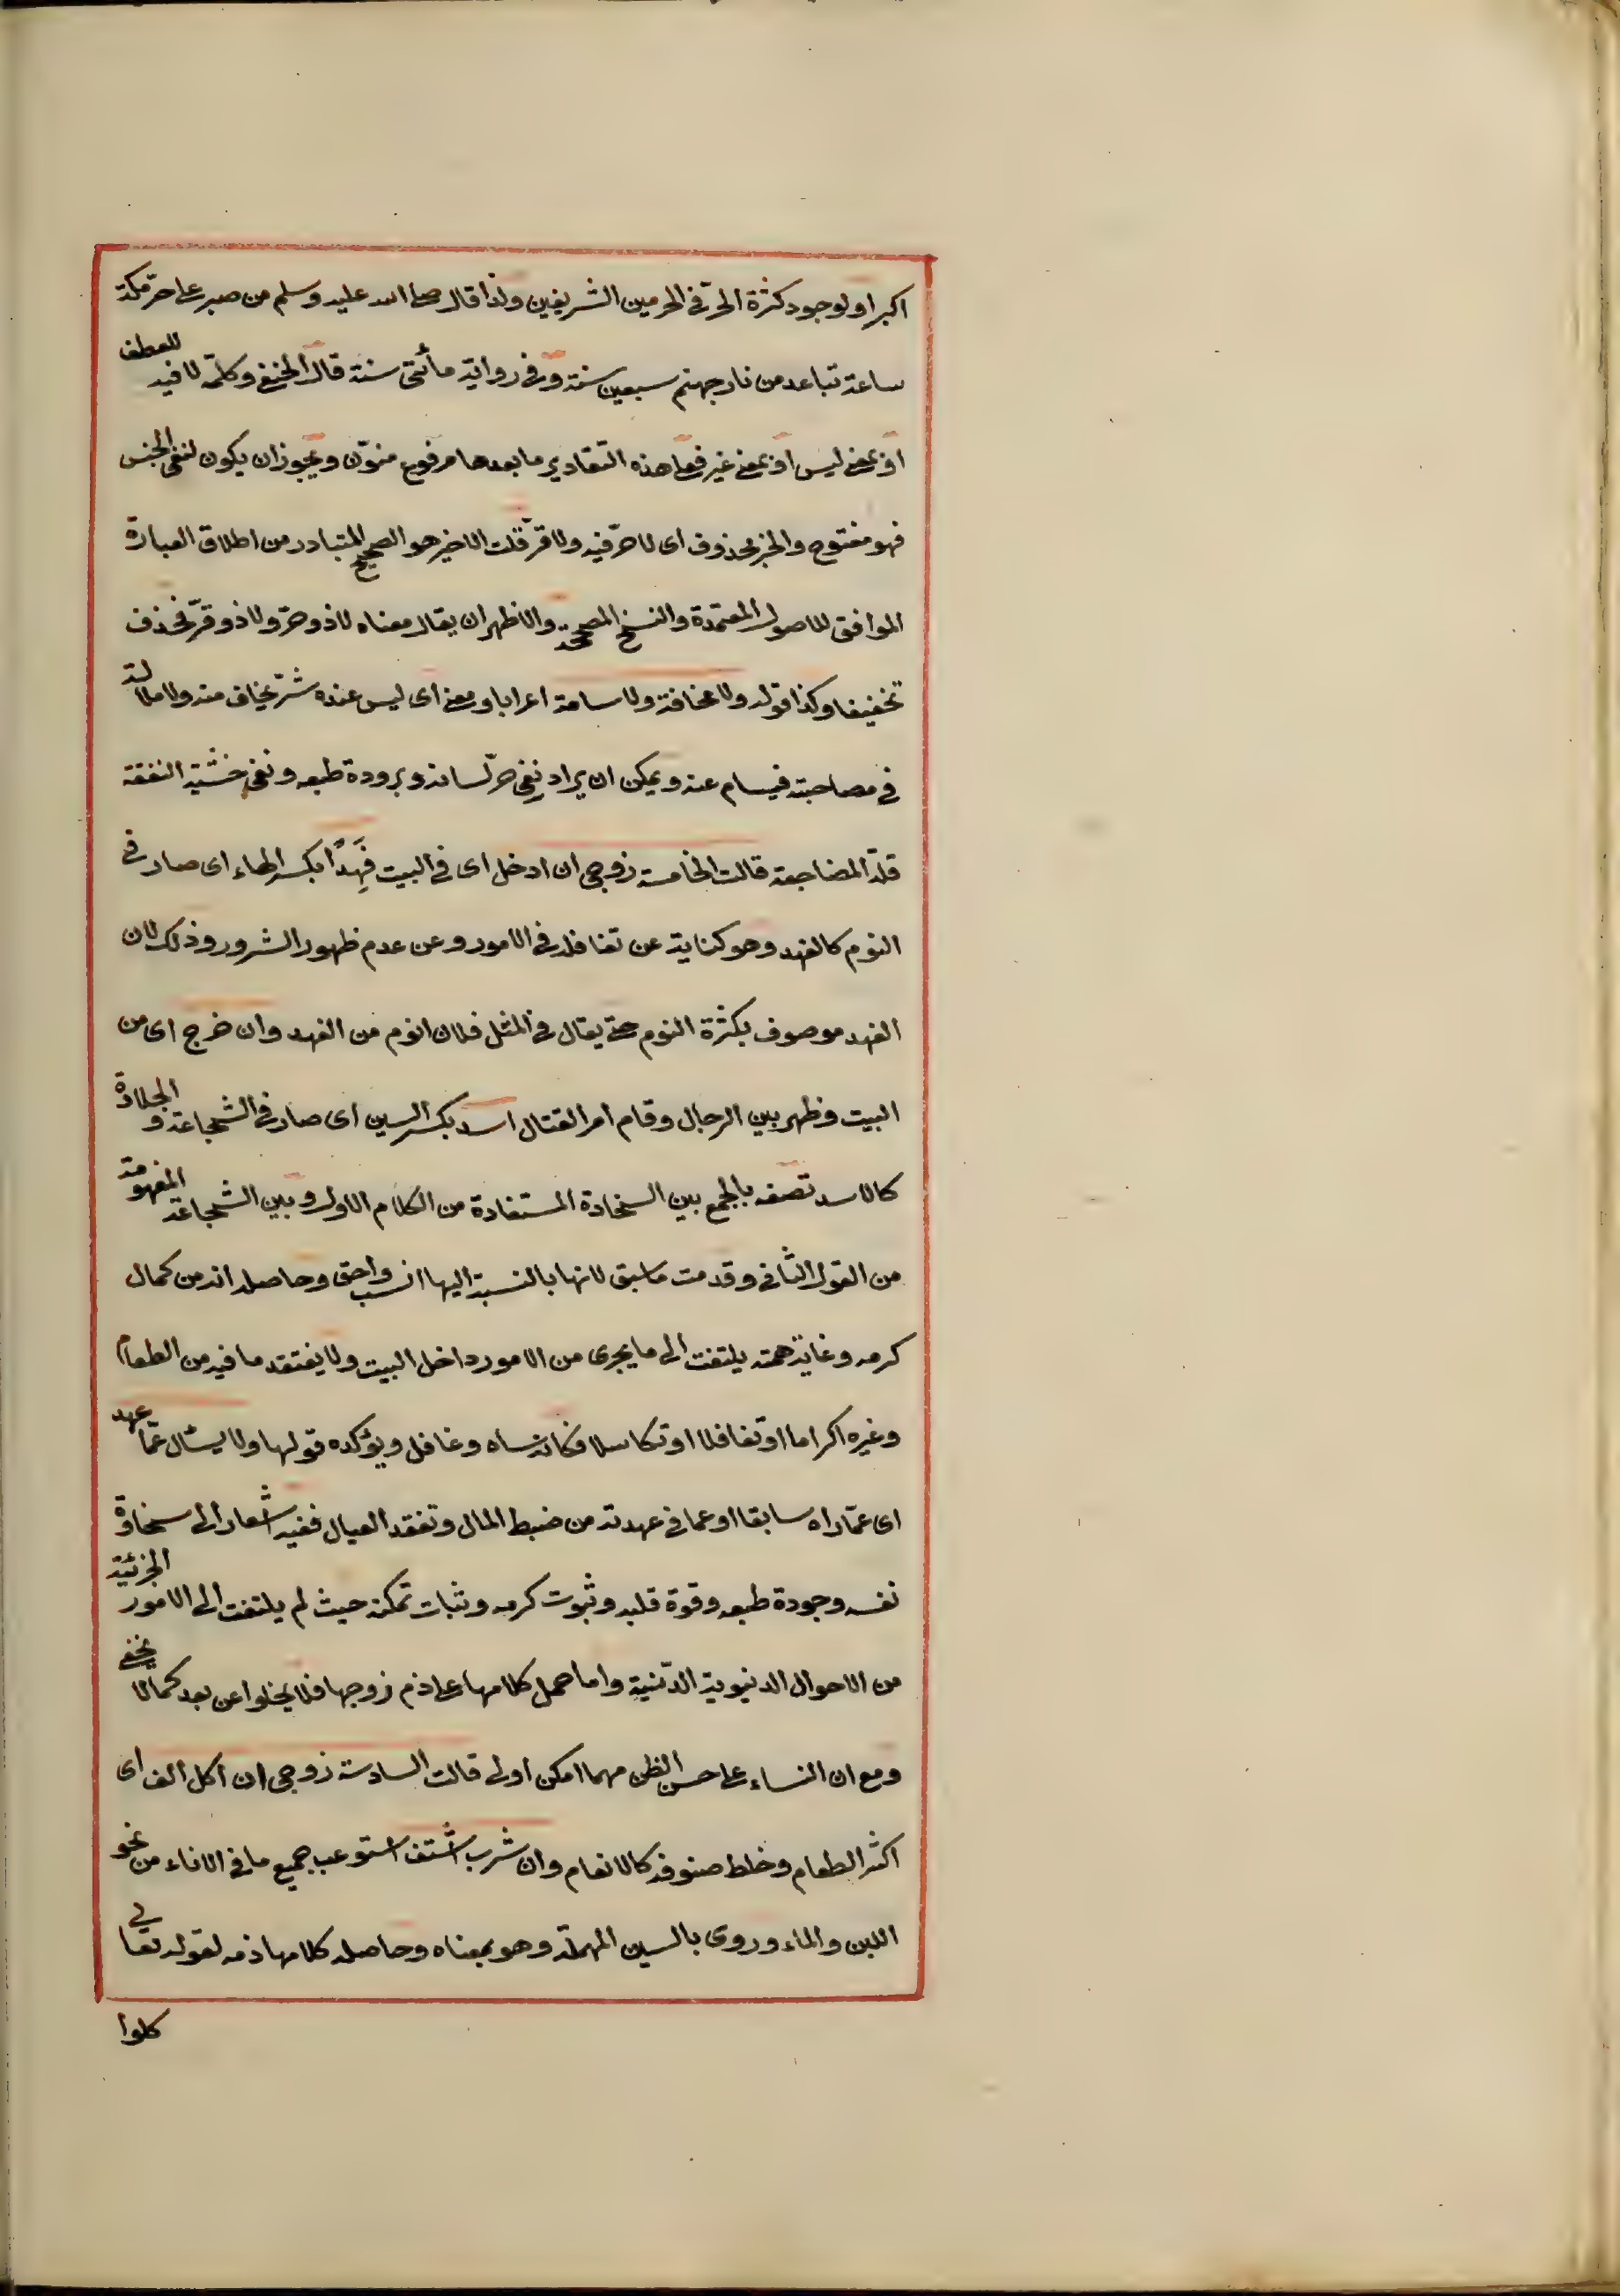 اكبر او لوجود كثرة الحرّ في الحرمين الشريفين ولذا قال صلى الله عليه وسلم من صبر على حر مكة
ساعة تباعد من نار جهنم سبعين سنة وفي رواية مأتى سنة قال الحنفى وكلمة لا فيه للعطف
او بمعنى ليس او بمعنى غير فعلى هذه التقادير ما بعدها مرفوع منوّن ويجوز ان يكون لنفى الجنس
فهو مفتوح والخبر محذوف اى لا حرّ فيه ولا قرّ قلت الاخير هو الصحيح المتبادر من اطلاق العبارة
الموافق للاصول المعتمدة والنسخ المصححة والاظهر ان يقال معناه لا ذو حرّ ولا ذو قرّ فحذف
تخفيفا وكذا قوله ولا مخافة ولا سامة اعرابا ومعنى اى ليس عنده شرّ يخاف منه ولا ملالة
في مصاحبته فيسام عنه ويمكن ان يراد نفى حرّ لسانه وبرودة طبعه ونفى خشية النفقة
قلة المضاجعة قالت الخامسة زوجى ان ادخل اى في البيت فَهِدًا بكسر الهاء اى صار في
النوم كالفهد وهو كناية عن تغافله في الامور وعن عدم ظهور الشرور وذلك لان
الفهد موصوف بكثرة النوم حتى يقال في المثل فلان انوم من الفهد وان خرج اى من
البيت وظهر بين الرجال وقام امر القتال اسد بكسر السين اى صار في الشجاعة والجلادة
كالاسد تصفه بالجمع بين السخادة المستفادة من الكلام الاول وبين الشجاعة المفهومة
من القول الثانى وقدمت ما سبق لانها بالنسبة اليها انسب واحق وحاصله انه من كمال
كرمه وغاية همته يلتفت الى ما يجرى من الامور داخل البيت ولا يفتقد ما فيه من الطعام
وغيره اكراما او تغافلا او تكاسلا فكانه ساه وغافل ويؤكده قولها ولا يسئال عمّا عهد
اى عمّا راه سابقا او عما في عهدته من ضبط المال وتفقد العيال ففيه اشعار الى سخاوة
نفسه وجودة طبعه وقوة قلبه وثبوت كرمه وثبات تمكنه حيث لم يلتفت الى الامور الجزئية
من الاحوال الدنيوية الدّنيّة واما حمل كلامها على ذم زوجها فلا يخلوا عن بعد كما لا يخفى
ومع ان النساء على حسن الظن مهما امكن اولى قالت السادسة زوجى ان اكل الف اى
اكثر الطعام وخلط صنوفه كالانعام وان شرب اشتف استوعب جميع ما في الاناء من نحو
اللبن والماء وروى بالسين المهملة وهو بمعناه وحاصله كلامها ذمه لقوله تعالى
كلوا